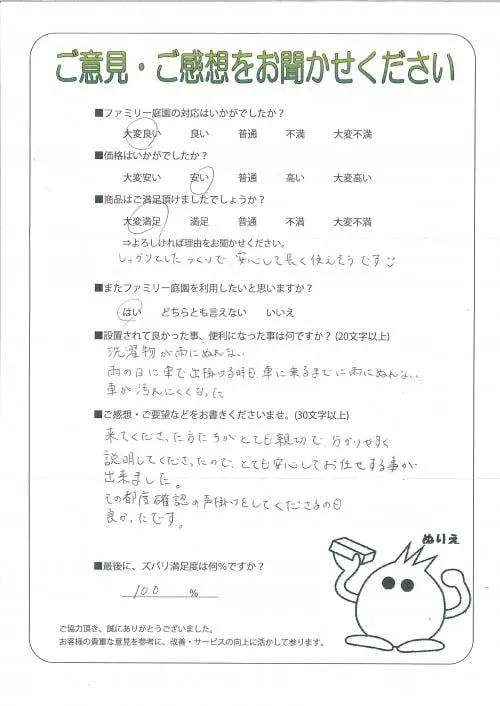 ご意見・ご感想をお聞かせください
■ファミリー庭園の対応はいかがでしたか？
大変良い 良い 普通 不満 大変不満
■価格はいかがでしたか？
大変安い 安い 普通 高い 大変高い
■商品はご満足頂けましたでしょうか？
大変満足 満足 普通 不満 大変不満
⇒よろしければ理由をお聞かせください。
しっかりとしたつくりで 安心して長く使えそうです
■またファミリー庭園を利用したいと思いますか？
はい どちらとも言えない いいえ
■設置されて良かった事、便利になった事は何ですか？(20文字以上)
洗濯物が雨にぬれない
雨の日に車で出掛ける時も、車に乗るまでに雨にぬれない
車が汚れにくくなった
■ご感想・ご要望などをお書きくださいませ。(30文字以上)
来てくださった方たちがとても親切で、分かりやすく
説明してくださったので、とても安心してお任せする事が
出来ました。
その都度確認の声掛けをしてくださるのも
良かったです。
ぬりえ
■最後に、ズバリ満足度は何％ですか？
100 ％
ご協力頂き、誠にありがとうございました。
お客様の貴重な意見を参考に、改善・サービスの向上に活かして参ります。